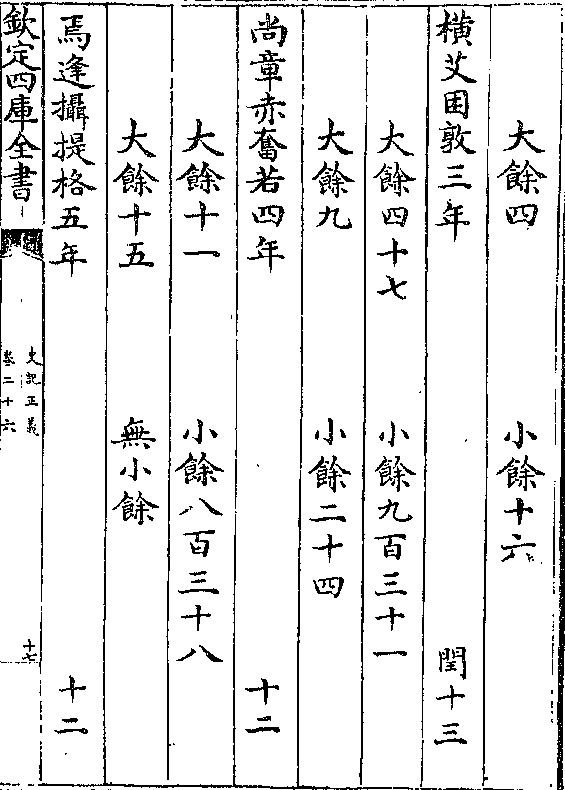 大餘四　小餘十六
橫艾困敦三年　閏十三
大餘四十七　小餘九百三十一
大餘九　小餘二十四
尚章赤奮若四年　十二
大餘十一　小餘八百三十八
大餘十五　無小餘
焉逢攝提格五年　十二
欽定四庫全書
史記正義
卷二十六
十七